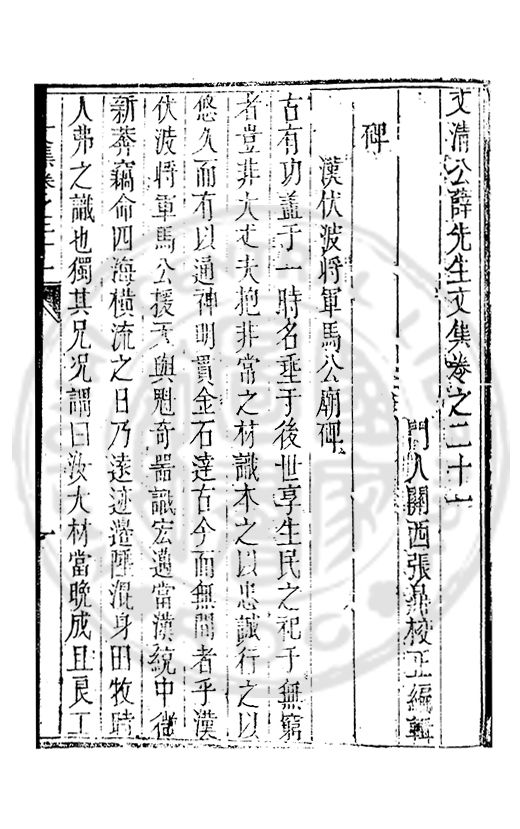 文清公薛先生文集卷之二十一
門人關西張鼎校正編輯
碑
漢伏波將軍馬公廟碑
古有功蓋于一時名垂于後世享生民之祀于無窮
者豈非大丈夫抱非常之材識本之以忠誠行之以
悠久而有以通神明貫金石達古今而無間者乎漢
伏波將軍馬公援天與魁奇器識宏邁當漢統中微
新莽竊命四海橫流之日乃遠迹邊陲混身田牧時
人弗之識也獨其兄况謂曰汝大材當晚成且良工
文集卷之二十一